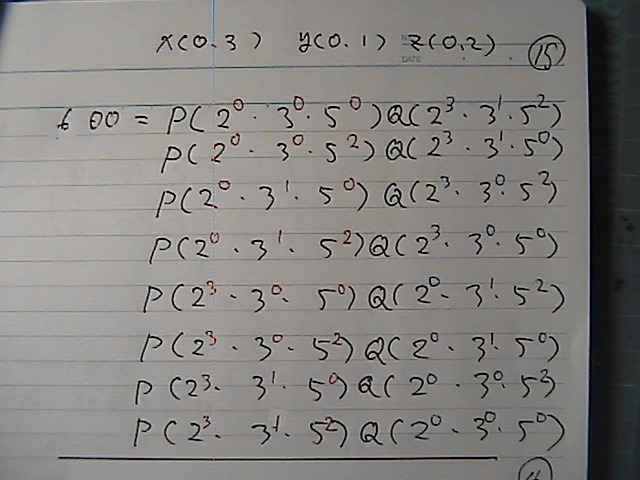 x(0.3) y(0.1) z(0,2) ⑮
DATE
600 = P(2⁰・3⁰・5⁰)Q(2³・3¹・5²)
P(2⁰・3⁰・5²)Q(2³・3¹・5⁰)
P(2⁰・3¹・5⁰)Q(2³・3⁰・5²)
P(2⁰・3¹・5²)Q(2³・3⁰・5⁰)
P(2³・3⁰・5⁰)Q(2⁰・3¹・5²)
P(2³・3⁰・5²)Q(2⁰・3¹・5⁰)
P(2³・3¹・5⁰)Q(2⁰・3⁰・5²)
P(2³・3¹・5²)Q(2⁰・3⁰・5⁰)